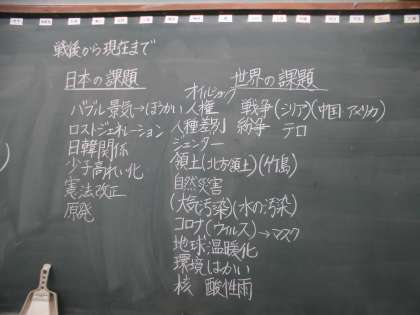 戦後から現在まで
日本の課題
バブル景気→ほうかい
ロストジェネレーション
日韓関係
少子高れい化
憲法改正
原発
世界の課題
オイルショック
人権 戦争(シリア)(中国 アメリカ)
人種差別 紛争 テロ
ジェンダー
領土(北方領土)(竹島)
自然災害
(大気汚染)(水の汚染)
コロナ(ウィルス)→マスク
地球温暖化
環境はかい
核 酸性雨